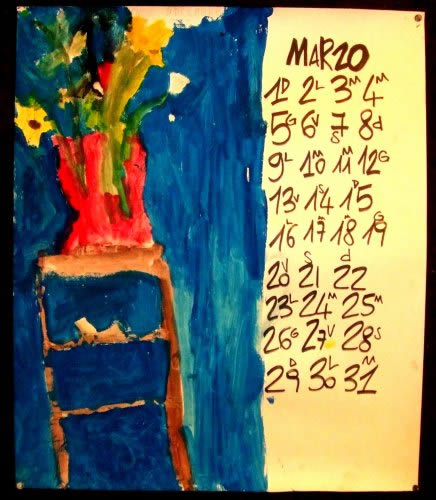 MARZO
1D 2L 3M 4M
5G 6V 7S 8d
9L 10M 11M 12G
13V 14S 15D
16L 17 18 19G
20V 21S 22d
23L 24M 25M
26G 27V 28S
29D 30L 31M